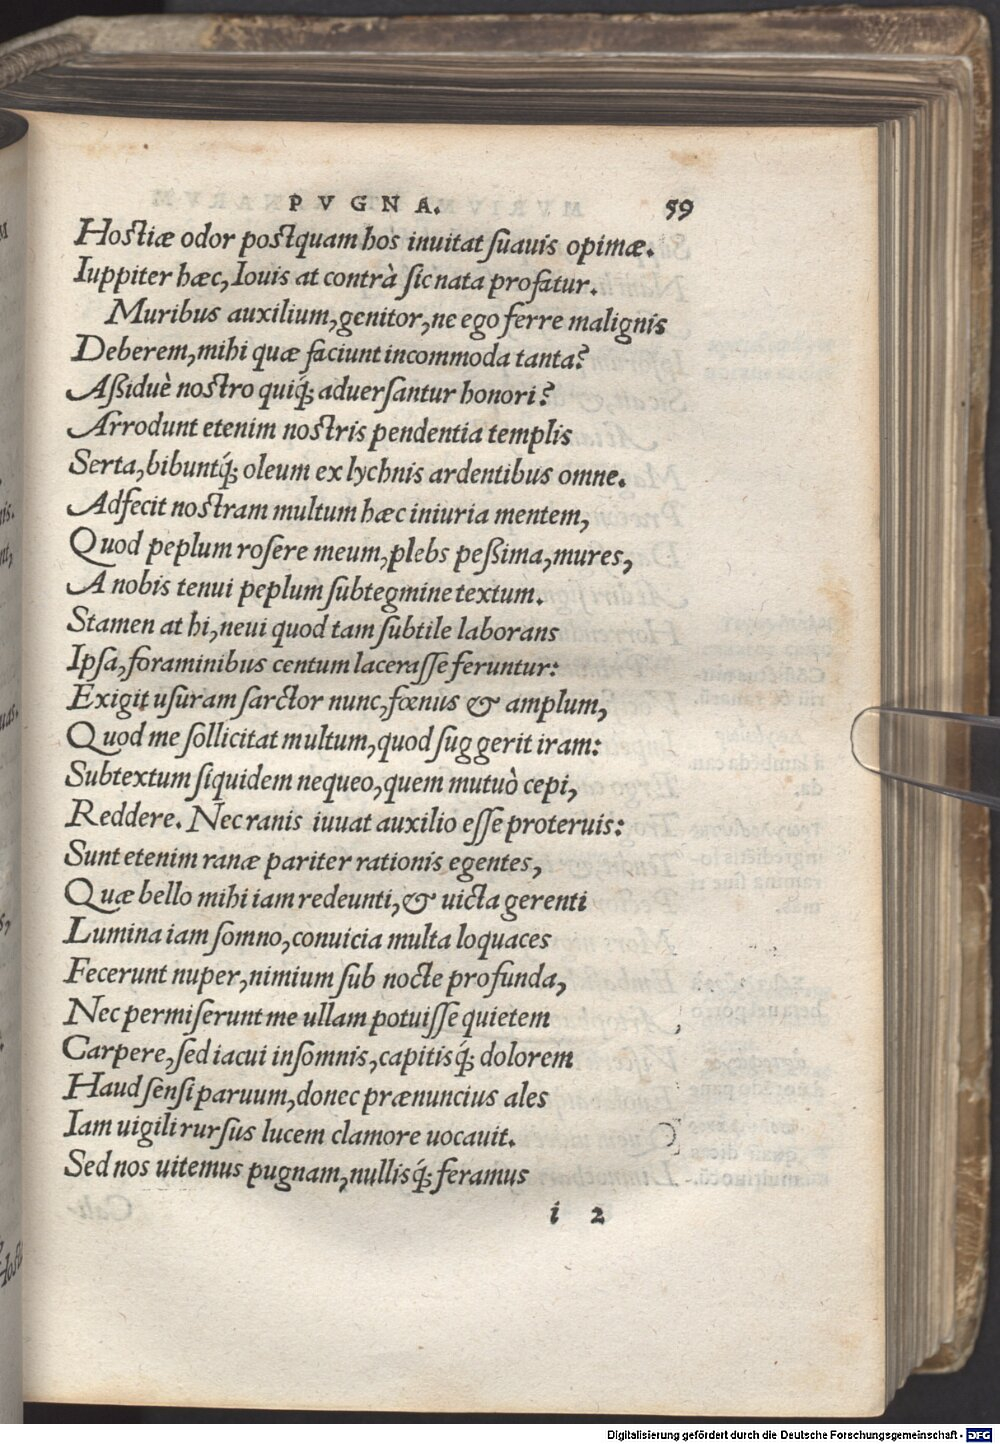 PVGNA. 59
Hostiæ odor postquam hos inuitat ſuauis opimæ.
Iuppiter hæc, Iouis at contrà ſic nata profatur.
Muribus auxilium, genitor, ne ego ferre malignis
Deberem, mihi quæ faciunt incommoda tanta?
Aßiduè nostro quiq́; aduerſantur honori?
Arrodunt etenim nostris pendentia templis
Serta, bibuntq́; oleum ex lychnis ardentibus omne.
Adfecit nostram multum hæc iniuria mentem,
Quod peplum roſere meum, plebs peßima, mures,
A nobis tenui peplum ſubtegmine textum.
Stamen at hi, neui quod tam ſubtile laborans
Ipſa, foraminibus centum laceraſſe feruntur:
Exigit uſuram ſarctor nunc, fœnus & amplum,
Quod me ſollicitat multum, quod ſuggerit iram:
Subtextum ſiquidem nequeo, quem mutuò cepi,
Reddere. Nec ranis iuuat auxilio eſſe proteruis:
Sunt etenim ranæ pariter rationis egentes,
Quæ bello mihi iam redeunti, & uicta gerenti
Lumina iam ſomno, conuicia multa loquaces
Fecerunt nuper, nimium ſub nocte profunda,
Nec permiſerunt me ullam potuiſſe quietem
Carpere, ſed iacui inſomnis, capitisq́; dolorem
Haud ſenſi paruum, donec prænuncius ales
Iam uigili rurſus lucem clamore uocauit.
Sed nos uitemus pugnam, nullisq́; feramus
i 2
Digitalisierung gefördert durch die Deutsche Forschungsgemeinschaft - DFG